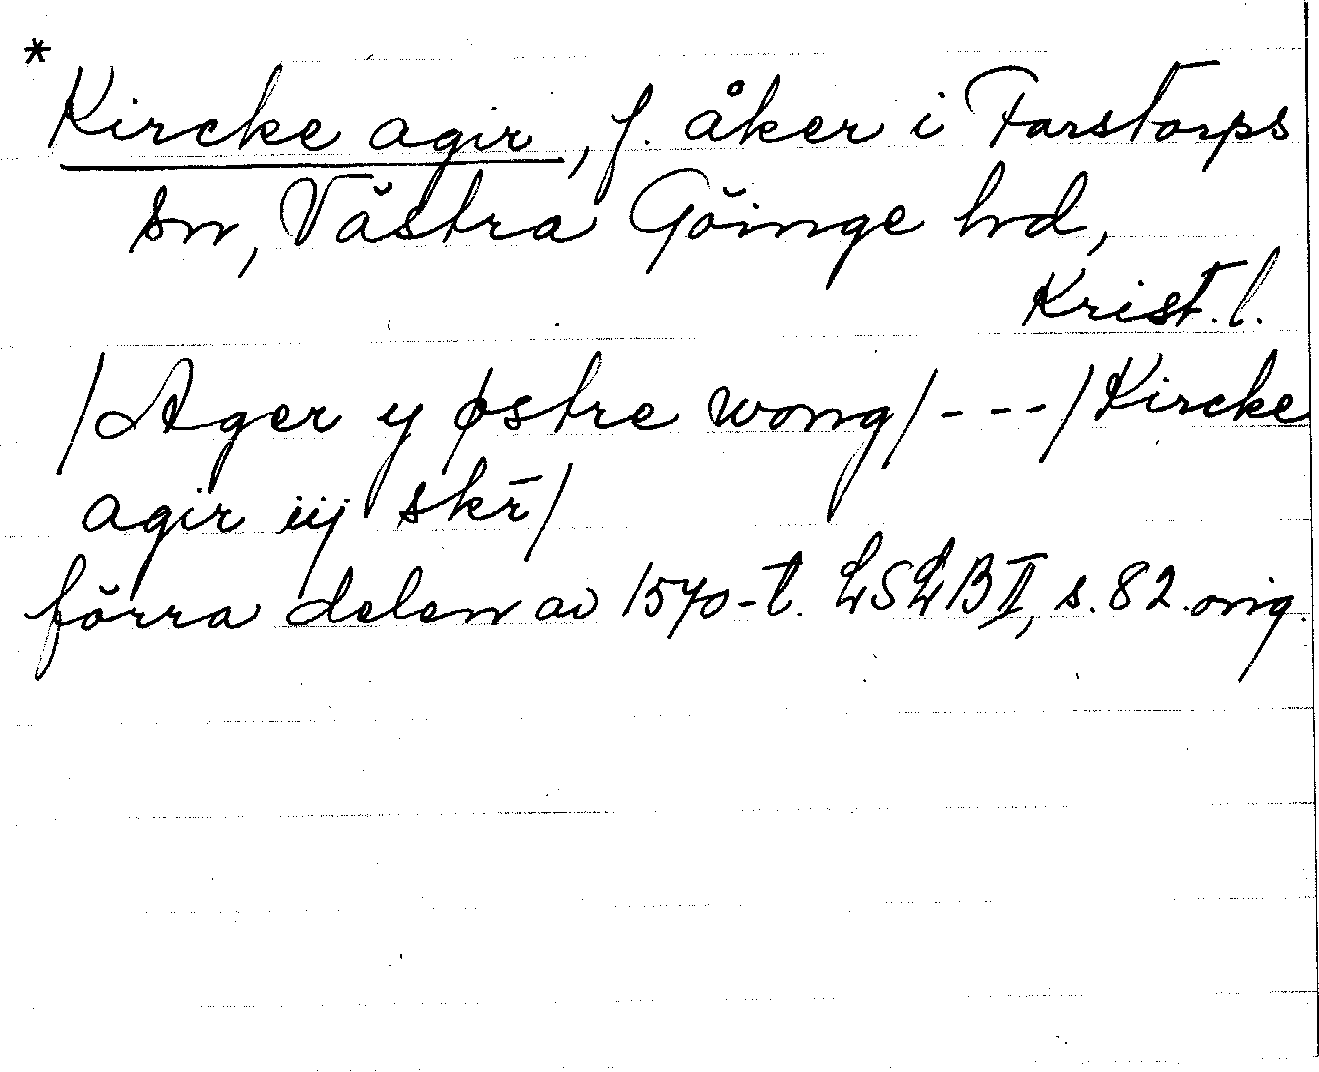 *
Kircke agir, f. åker i Farstorps
sn, Västra Göinge hd,
Krist. l.
/Ager y østre wong/---/Kircke
agir iij skr̄/
förra delen av 1570-t. LSLB II, s. 82. orig.